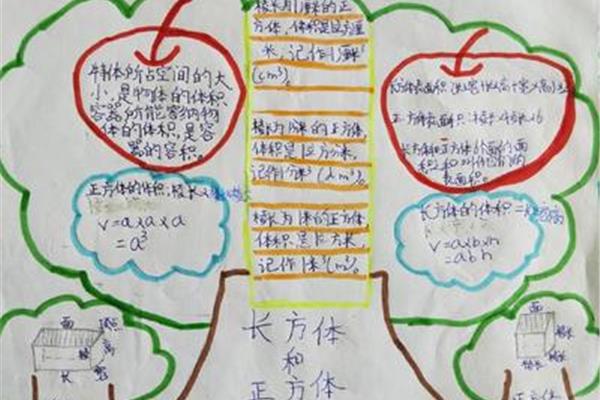 物体所占空间的大
小,是物体的体积
容器所能容纳物
体的体积,是容
器的容积。
棱长为1厘米的正
方体,体积是1立方厘
米,记作1厘米³
(cm³)。
棱长为1分米的正方体,
体积是1立方分米,
记作1分米³(dm³)。
棱长为1米的正方体
体积是1立方米,
记作1米³(m³)。
长方体表面积
正方体表面积
长方体和正方体6个面的面
积
表面积。
正方体的体积:棱长×
V=a×a×a
=a³
长方体的体积=长×宽×高
V=a×b×h
=abh
面
顶点
棱
高
长
宽
长方体
和
正方体
面
棱长
棱长
棱长
正方体